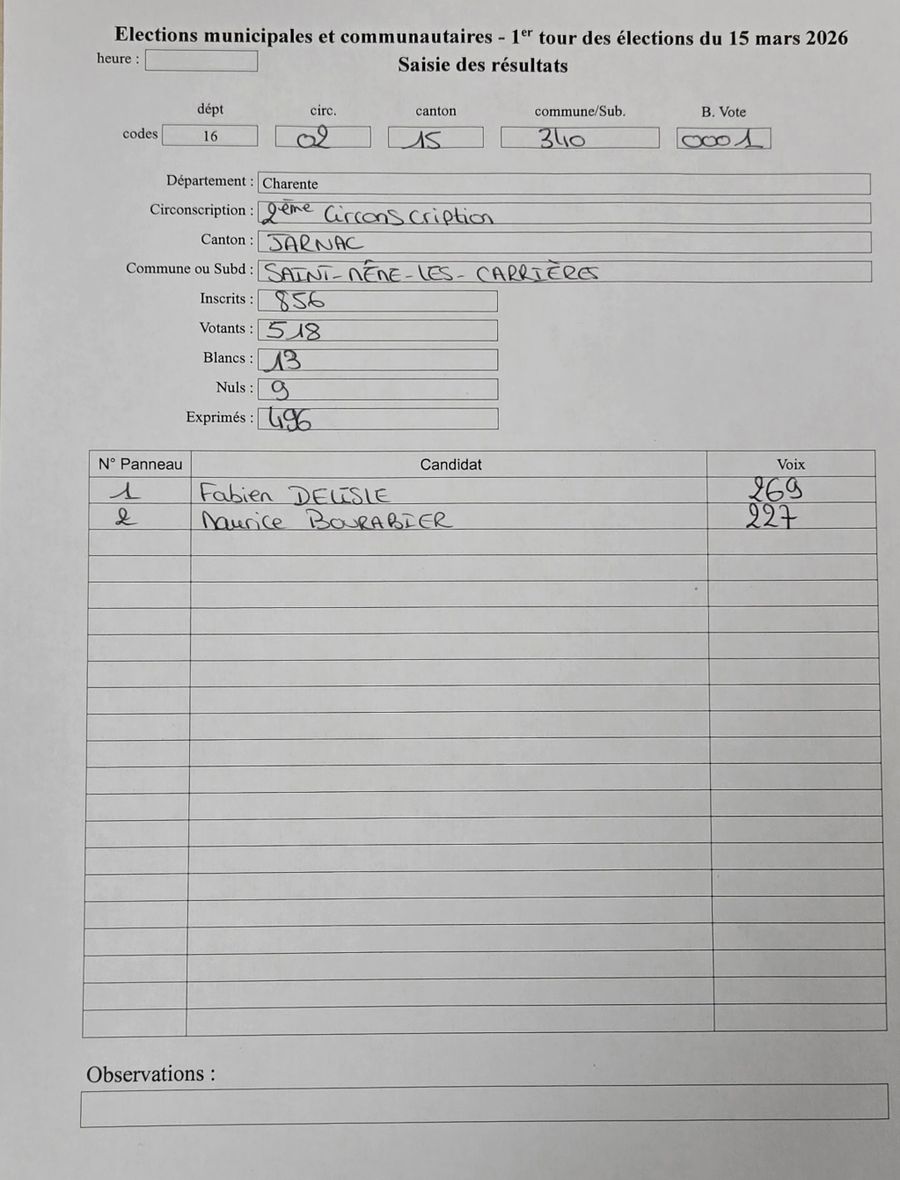 Elections municipales et communautaires - 1er tour des élections du 15 mars 2026
heure :
Saisie des résultats
dépt circ. canton commune/Sub. B. Vote
codes 16 02 15 340 0001
Département : Charente
Circonscription : 2ème Circonscription
Canton : JARNAC
Commune ou Subd : SAINT-MÊME-LES-CARRIÈRES
Inscrits : 856
Votants : 518
Blancs : 13
Nuls : 9
Exprimés : 496
N° Panneau Candidat Voix
1 Fabien DELISLE 269
2 Maurice BOURABIER 227
Observations :